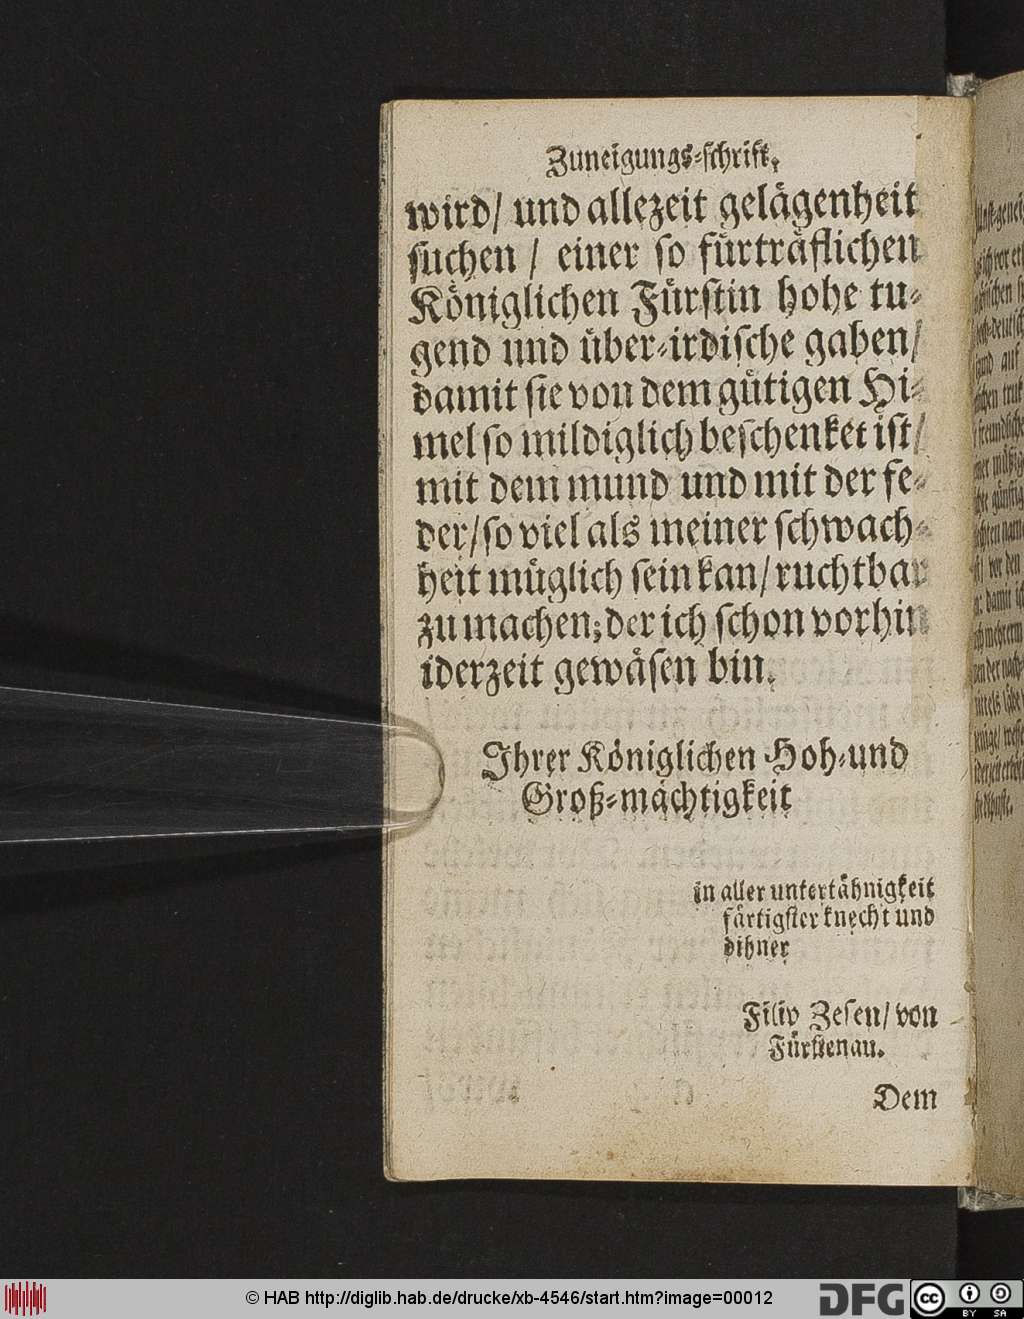 Zuneigungs-schrift.
wird/ und allezeit gelägenheit
suchen / einer so fürträflichen
Königlichen Fürstin hohe tu-
gend und über-irdische gaben/
damit sie von dem gütigen Hi-
mel so mildiglich beschenket ist/
mit dem mund und mit der fe-
der/ so viel als meiner schwach-
heit müglich sein kan/ ruchtbar
zu machen; der ich schon vorhin
iderzeit gewäsen bin.
Ihrer Königlichen Hoh-und
Groß-mächtigkeit
in aller untertähnigkeit
färtigster knecht und
dihner
Filip Zesen/ von
Fürstenau.
Dem
© HAB http://diglib.hab.de/drucke/xb-4546/start.htm?image=00012
DFG
CC BY SA